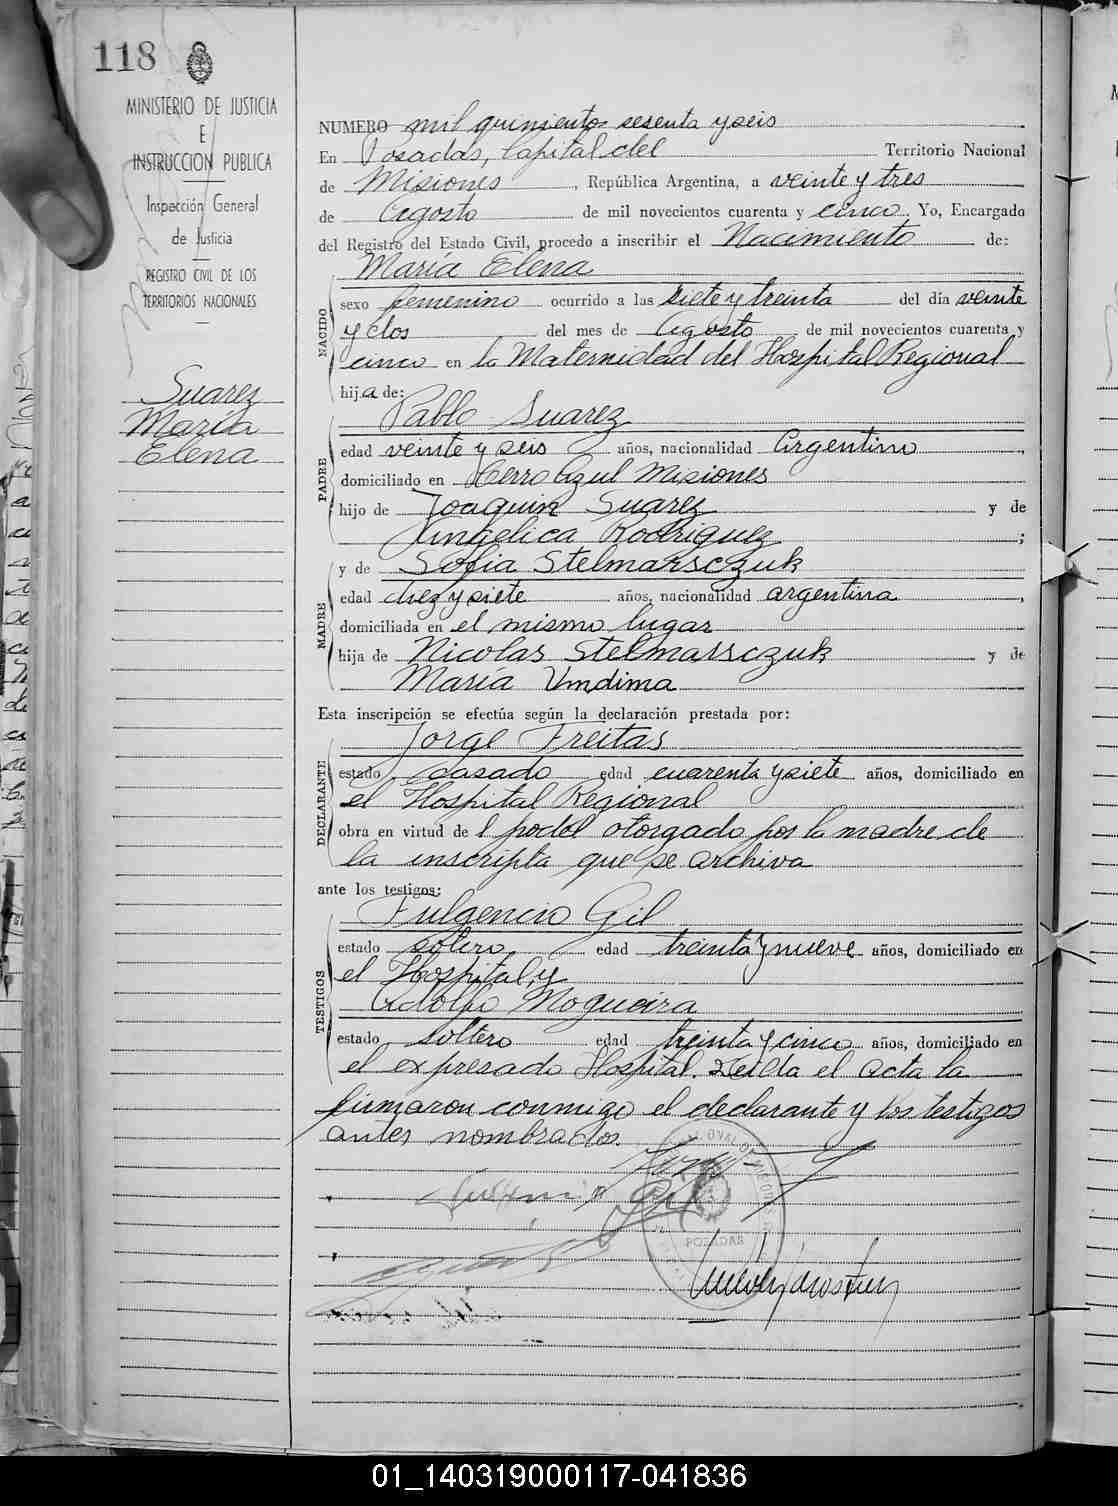 118
MINISTERIO DE JUSTICIA
E
INSTRUCCION PUBLICA
Inspección General
de Justicia
REGISTRO CIVIL DE LOS
TERRITORIOS NACIONALES
Suarez
María
Elena
NUMERO mil quinientos sesenta y seis
En Posadas, Capital del Territorio Nacional
de Misiones, República Argentina, a veinte y tres
de Agosto de mil novecientos cuarenta y cinco. Yo, Encargado
del Registro del Estado Civil, procedo a inscribir el Nacimiento de:
María Elena
NACIDO
sexo femenino ocurrido a las siete y treinta del día veinte
y dos del mes de Agosto de mil novecientos cuarenta y
cinco en la Maternidad del Hospital Regional
hija de:
Pablo Suarez
PADRE
edad veinte y seis años, nacionalidad Argentino,
domiciliado en Cerro Azul Misiones
hijo de Joaquin Suarez y de
Angelica Rodriguez;
y de Sofia Stelmarsczuk
MADRE
edad diez y siete años, nacionalidad argentina,
domiciliada en el mismo lugar
hija de Nicolas Stelmarsczuk y de
María Undima
Esta inscripción se efectúa según la declaración prestada por:
Jorge Freitas
DECLARANTE
estado casado edad cuarenta y siete años, domiciliado en
el Hospital Regional
obra en virtud de l poder otorgado por la madre de
la inscripta que se archiva
ante los testigos:
Fulgencio Gil
TESTIGOS
estado soltero edad treinta y nueve años, domiciliado en
el Hospital, y
Adolfo Nogueira
estado soltero edad treinta y cinco años, domiciliado en
el expresado Hospital. Leida el acta la
firmaron conmigo el declarante y los testigos
antes nombrados.
POSADAS
01_140319000117-041836